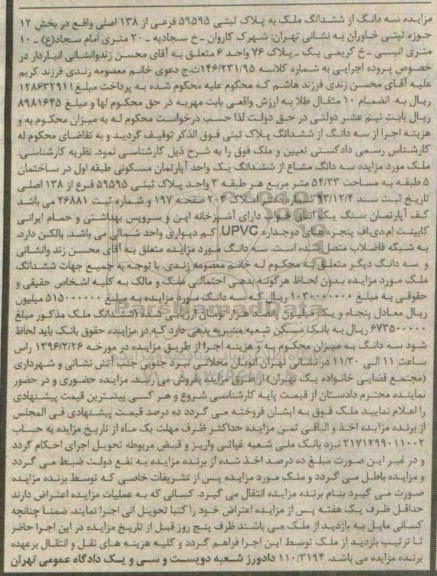 مزایده سه دانگ از ششدانگ ملک به پلاک ثبتی ۵۹۵۹۵ فرعی از ۱۳۸ اصلی واقع در بخش ۱۲
حوزه ثبتی خاوران به نشانی تهران: شهرک کاروان _ خ سجادیه _ ۲۰ متری امام سجاد(ع) _ ۱۰
متری انیسی _ خ کریمی یک _ پلاک ۷۶ واحد ۶ متعلق به آقای محسن زندوانشانی انباردار در
خصوص پرونده اجرایی به شماره کلاسه ۱۴۶/۲۳۱/۹۵ ج دعوی خانم معصومه زندی فرزند کریم
علیه آقای محسن زندی فرزند هاشم که محکوم علیه محکوم شده به پرداخت مبلغ ۱۲۸۶۳۲۹۱۱
ریال به انضمام ۱۰ مثقال طلا به ارزش واقعی بابت مهریه در حق محکوم لها و مبلغ ۸۹۸۱۶۴۵
ریال بابت نیم عشر دولتی در حق دولت لذا حسب درخواست محکوم له به میزان محکوم به و
هزینه اجرا از سه دانگ از ششدانگ پلاک ثبتی فوق الذکر توقیف گردید و به تقاضای محکوم له
کارشناس رسمی دادگستری تعیین و ملک فوق را به شرح ذیل کارشناسی نمود. نظریه کارشناسی:
ملک مورد مزایده سه دانگ مشاع از ششدانگ یک واحد آپارتمان مسکونی طبقه اول در ساختمان
۵ طبقه به مساحت ۵۴/۳۳ متر مربع هر طبقه ۳ واحد پلاک ثبتی ۵۹۵۹۵ فرع از ۱۳۸ اصلی
تاریخ ثبت سند ۹۳/۱۲/۴ املاک ۲۰۴ صفحه ۱۹۷ و شماره ثبت ۲۶۸۸۱ می باشد
کف آپارتمان سنگ یک اتاق خواب دارای آشپزخانه اپن و سرویس بهداشتی و حمام ایرانی
کابینت ام.دی.اف پنجره های دوجداره UPVC کم دیواری واحد شمالی می باشد. بالکن دارد.
به شبکه فاضلاب متصل شده است. سه دانگ مورد مزایده متعلق به آقای محسن زند وانشانی
و سه دانگ دیگر متعلق به محکوم له خانم معصومه زندی. با توجه به جمیع جهات ششدانگ
ملک مورد مزایده بدون لحاظ هرگونه بدهی احتمالی ملک و مالک به کلیه اشخاص حقیقی و
حقوقی به مبلغ ۱۰۳۰۰۰۰۰۰۰ ریال که سه دانگ مورد مزایده به مبلغ ۵۱۵۰۰۰۰۰۰ میلیون
ریال معادل پنجاه و یک میلیون و ششدانگ ملک مذکور مبلغ
۶۷۳۵۰۰۰۰ ریال به بانک مسکن شعبه منیریه بدهی دارد که در مزایده حقوق بانک باید لحاظ
شود سه دانگ به میزان محکوم به و هزینه اجرا از طریق مزایده در مورخه ۱۳۹۶/۲/۲۶ راس
ساعت ۱۱ الی ۱۱/۳۰ در نشانی تهران اتوبان محلاتی نبرد جنوبی جنب آتش نشانی و شهرداری
(مجتمع قضایی خانواده یک تهران) از طریق مزایده بفروش می رسد. مزایده حضوری و در حضور
نماینده محترم دادستان از قیمت پایه کارشناسی شروع و هر کسی بیشترین قیمت پیشنهادی
را اعلام نمایید ملک فوق به ایشان فروخته می گردد ده درصد قیمت پیشنهادی فی المجلس
از برنده مزایده اخذ و الباقی ثمن مزایده حداکثر ظرف مهلت یک ماه از تاریخ مزایده به حساب
۲۱۷۱۲۹۹۰۱۱۰۰۲ نزد بانک ملی شعبه غیاثی واریز و قبض مربوطه تحویل اجرای احکام گردد
و در غیر این صورت مبلغ ده درصد اخذ شده از برنده مزایده به نفع دولت ضبط می گردد
و مزایده باطل می گردد و ملک مورد مزایده پس از تشریفات خاصی که توسط برنده مزایده
صورت می گیرد بنام برنده مزایده انتقال می گیرد. کسانی که به عملیات مزایده اعتراض دارند
حداقل ظرف یک هفته پس از مزایده اعتراض خود را کتبا تحویل اتی اجرا نمایند. ضمنا چنانچه
کسانی مایل به بازدید از ملک می باشند ظرف پنج روز قبل از تاریخ مزایده در این اجرا حاضر
تا ترتیب بازدید از ملک توسط این اجرا فراهم گردد و کلیه هزینه های نقل و انتقال برعهده
برنده مزایده می باشد. ۱۱۰/۳۱۹۴ دادورز شعبه دویست و سی و یک دادگاه عمومی تهران